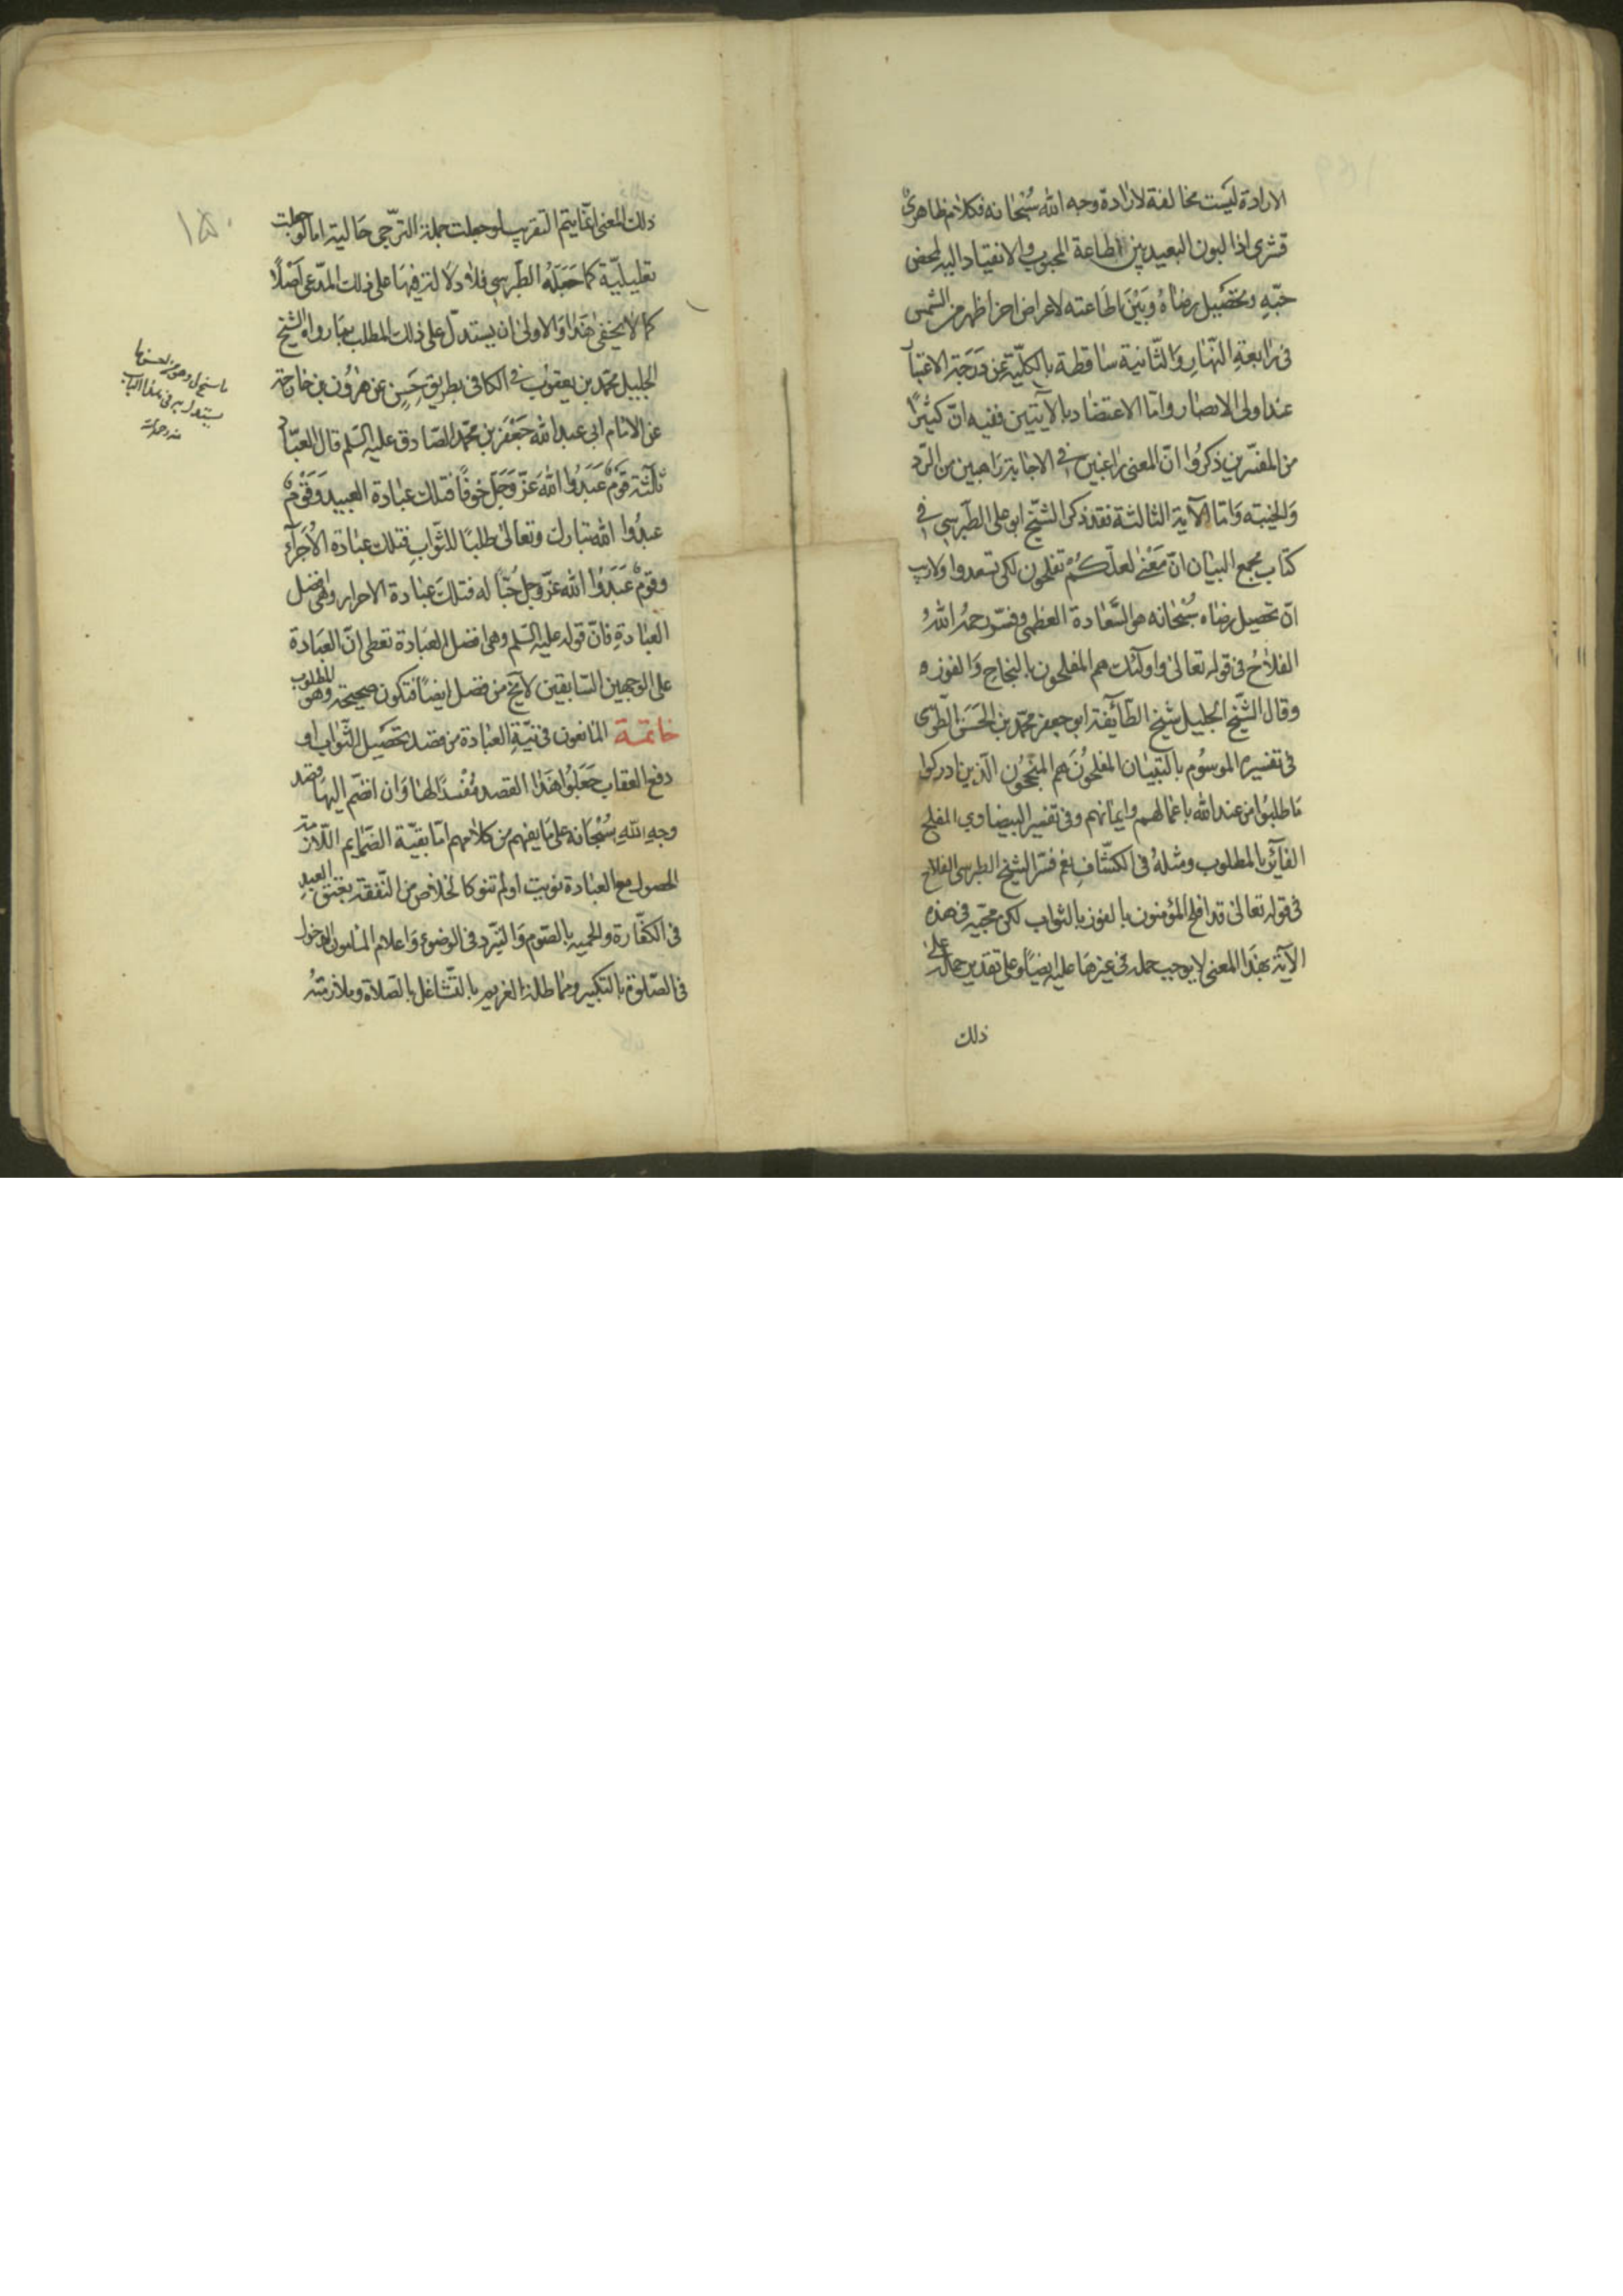 الارادة ليست مخالفة لارادة وجه الله سبحانه فكلام ظاهرىّ
قشرى اذ البون البعيد بين اطاعة المحبوب والانقياد اليه لمحض
حبّه وتحصيل رضاه وبين اطاعته لاعراض اخر اظهر من الشمس
فى رابعة النهار والثانية ساقطة بالكليّة عن درجة الاعتبار
عند اولى الابصار وامّا الاعتضاد بالآيتين ففيه انّ كثيرًا
من المفسّرين ذكروا انّ المعنى راغبين فى الاجابة راهبين من الردّ
والخيبة وامّا الآية الثالثة فقد ذكر الشيخ ابو على الطبرسى فى
كتاب مجمع البيان انّ معنى لعلّكم تفلحون لكى تسعدوا ولاريب
انّ تحصيل رضاه سبحانه هو السّعادة العظمى وفسّر رحمه الله
الفلاح فى قوله تعالى واولئك هم المفلحون بالنجاح والفوز ه
وقال الشّيخ الجليل شيخ الطّائفة ابو جعفر محمّد بن الحسن الطّوسى
فى تفسيره الموسوم بالتبيان المفلحون هم المنجحون الّذين ادركوا
ما طلبوا من عند الله باعمالهم وايمانهم وفى تفسير البيضاوي المفلح
الفائز بالمطلوب ومثله فى الكشّاف نعم فسّر الشيخ الطبرسى الفلاح
فى قوله تعالى قد افلح المؤمنون بالفوز بالثواب لكن مجيئه فى هذه
الآية بهذا المعنى لا يوجب حمله فى غيرها عليه ايضًا وعلى تقدير حمله على
ذلك
١٥٠
ذلك المعنى انّما يتم التقريب لو جعلت جملة الترّجى حالية امّا لو جعلت
تعليليّة كما جعله الطّبرسى فلا دلالة فيها على ذلك المدّعى اصلًا
كما لا يخفى هذا والاولى ان يستدلّ على ذلك المطلب بما رواه الشيخ
الجليل محمّد بن يعقوب فى الكافى بطريق حسن عن هرون بن خارجة
عن الامام ابى عبد الله جعفر بن محمّد الصّادق عليه السّلم قال العبّاد
ثلثة قوم عبدوا الله عزّ وجلّ خوفًا فتلك عبادة العبيد وقوم
عبدوا الله تبارك وتعالى طلبًا للثّواب فتلك عبادة الاُجراء
وقوم عبدوا الله عزّ وجل حُبًّا له فتلك عبادة الاحرار وهى افضل
العبادة فانّ قوله عليه السّلم وهى افضل العبادة تعطى انّ العبادة
على الوجهين السّابقين لا تخ من فضل ايضًا فتكون صحيحة وهو المطلوب
خاتمة المانعون فى نيّة العبادة من قصد تحصيل الثّواب او
دفع العقاب جعلوا هذا القصد مفسدًا لها وان انضمّ اليها قصد
وجه الله سبحانه على ما يفهم من كلامهم امّا بقيّة الضّمايم اللّازمة
الحصول مع العبادة نويت او لم تنو كالخلاص من النّفقة بعتق العبد
فى الكفّارة والحمية بالصّوم والتبرّد فى الوضوء واعلام المأموم الدخول
فى الصّلوة بالتكبير ومماطلة الغريم بالتّشاغل بالصّلاة وملازمته
يستدل به فى هذا الباب
منه رحمه الله